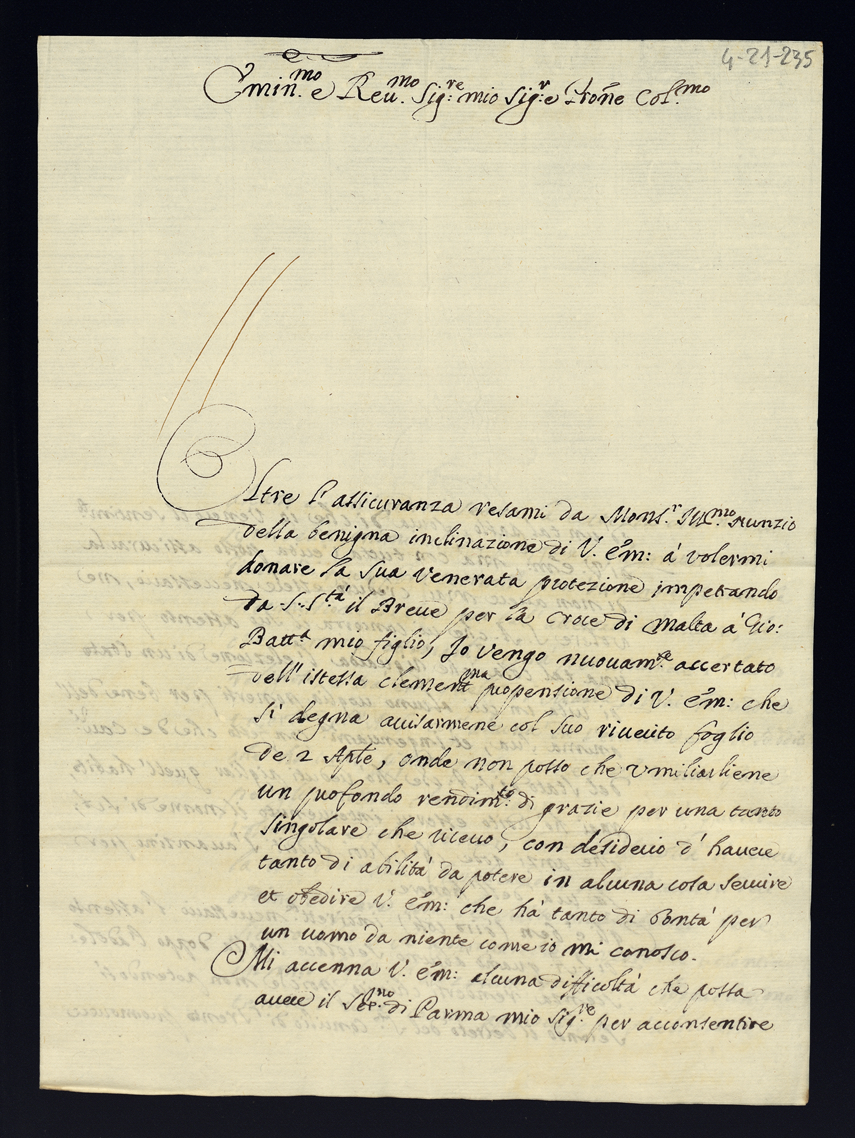 4-21-235
Emin.mo e Reu.mo Sig.re mio Sig.r e Prõne Col.mo
Oltre l'assicuranza resami da Mons.r Ill.mo Nunzio
della benigna inclinazione di V. Em: à volermi
donare la sua venerata protezione impetrando
da S. S.tà il Breue per la Croce di Malta a' Gio:
Batt.a mio figlio, Io vengo nuouam.te accertato
dell'istessa clement.ma propensione di V. Em: che
si degna auisarmene col suo riuerito foglio
de 2 Aple, onde non posso che vmiliarliene
un profondo rendim.to di grazie per una tanto
singolare che riceuo, con desiderio d'hauere
tanto di abilità da potere in alcuna cosa seruire
et obedire V. Em: che hà tanto di Bontà per
un uomo da niente come io mi conosco.
Mi accenna V. Em: alcuna difficoltà che possa
auere il Ser.mo di Parma mio Sig.re per acconsentire